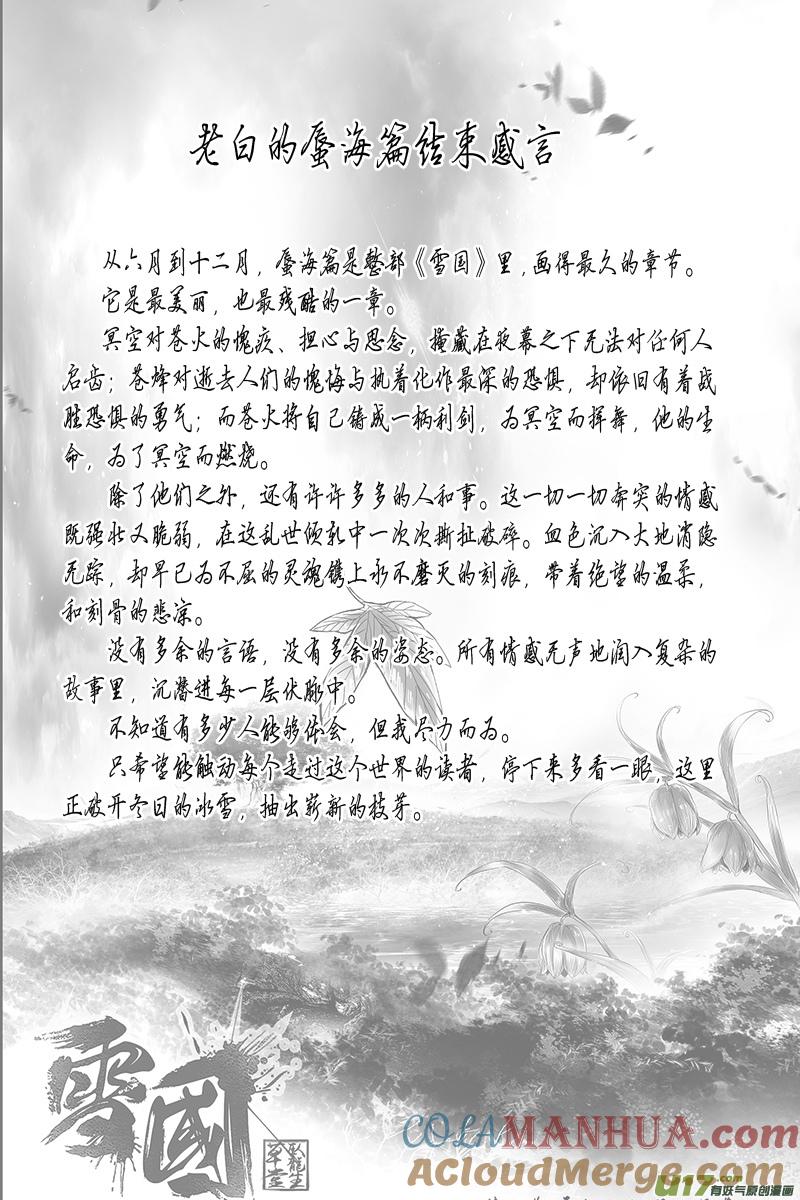 老白的蜃海篇结束感言
从六月到十二月，蜃海篇是整部《雪国》里，画得最久的章节。
它是最美丽，也最残酷的一章。
冥空对苍火的愧疚、担心与思念，掩藏在夜幕之下无法对任何人
启齿；苍烽对逝去人们的愧悔与执着化作最深的恐惧，却依旧有着战
胜恐惧的勇气；而苍火将自己铸成一柄利剑，为冥空而挥舞，他的生
命，为了冥空而燃烧。
除了他们之外，还有许许多多的人和事。这一切一切奔突的情感
既强壮又脆弱，在这乱世倾轧中一次次撕扯破碎。血色沉入大地消隐
无踪，却早已为不屈的灵魂镌上永不磨灭的刻痕，带着绝望的温柔，
和刻骨的悲凉。
没有多余的言语，没有多余的姿态。所有情感无声地润入复杂的
故事里，沉潜进每一层伏脉中。
不知道有多少人能够体会，但我尽力而为。
只希望能触动每个走过这个世界的读者，停下来多看一眼，这里
正破开冬日的冰雪，抽出崭新的枝芽。
雪國
臥龍生
草堂
COLAMANHUA.com
AcloudMerge.com
U17.com
有妖气原创漫画